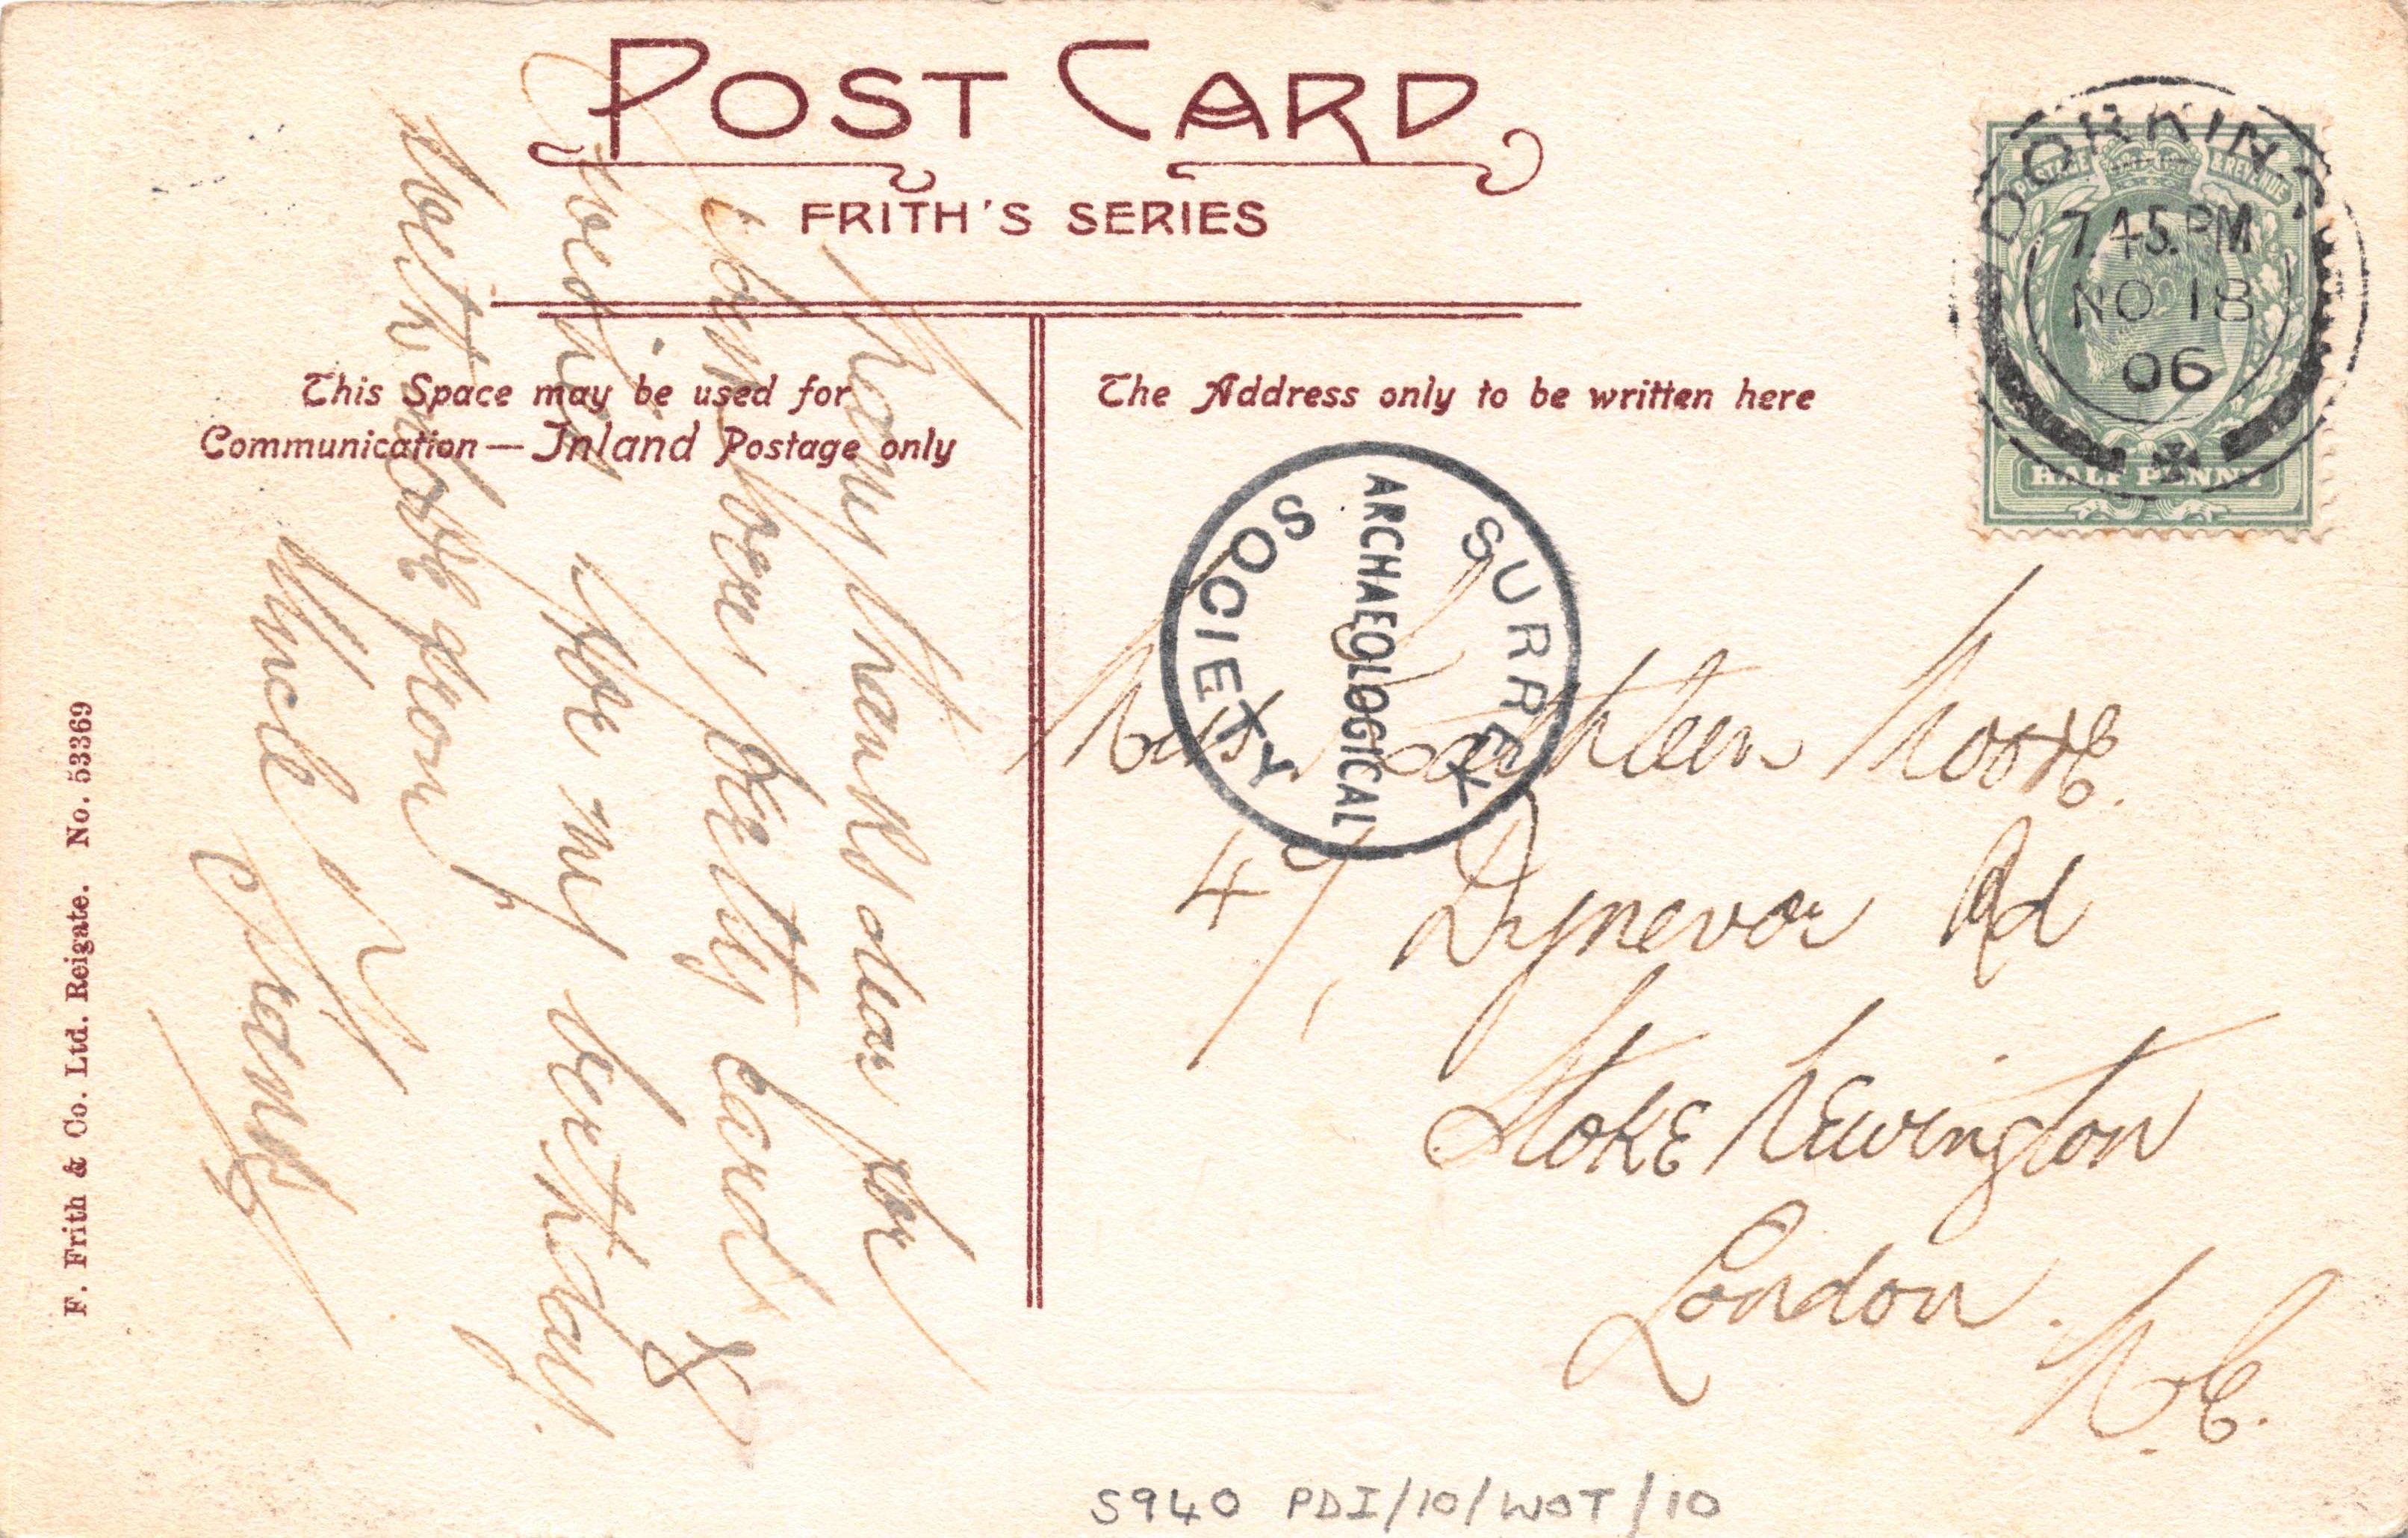 POST CARD
FRITH'S SERIES
This Space may be used for
Communication — Inland Postage only
The Address only to be written here
Many thanks dear for
very pretty card &
wishes for my birthday.
With love from
Uncle
Miss Kathleen Moore.
47, Dynevor Rd
Stoke Newington
London. N.E.
DORKING
7.45.PM
NO 18
06
POSTAGE & REVENUE
HALF PENNY
SURREY
ARCHAEOLOGICAL
SOCIETY
F. Frith & Co. Ltd. Reigate. No. 53369
S940 PDI/10/WOT/10